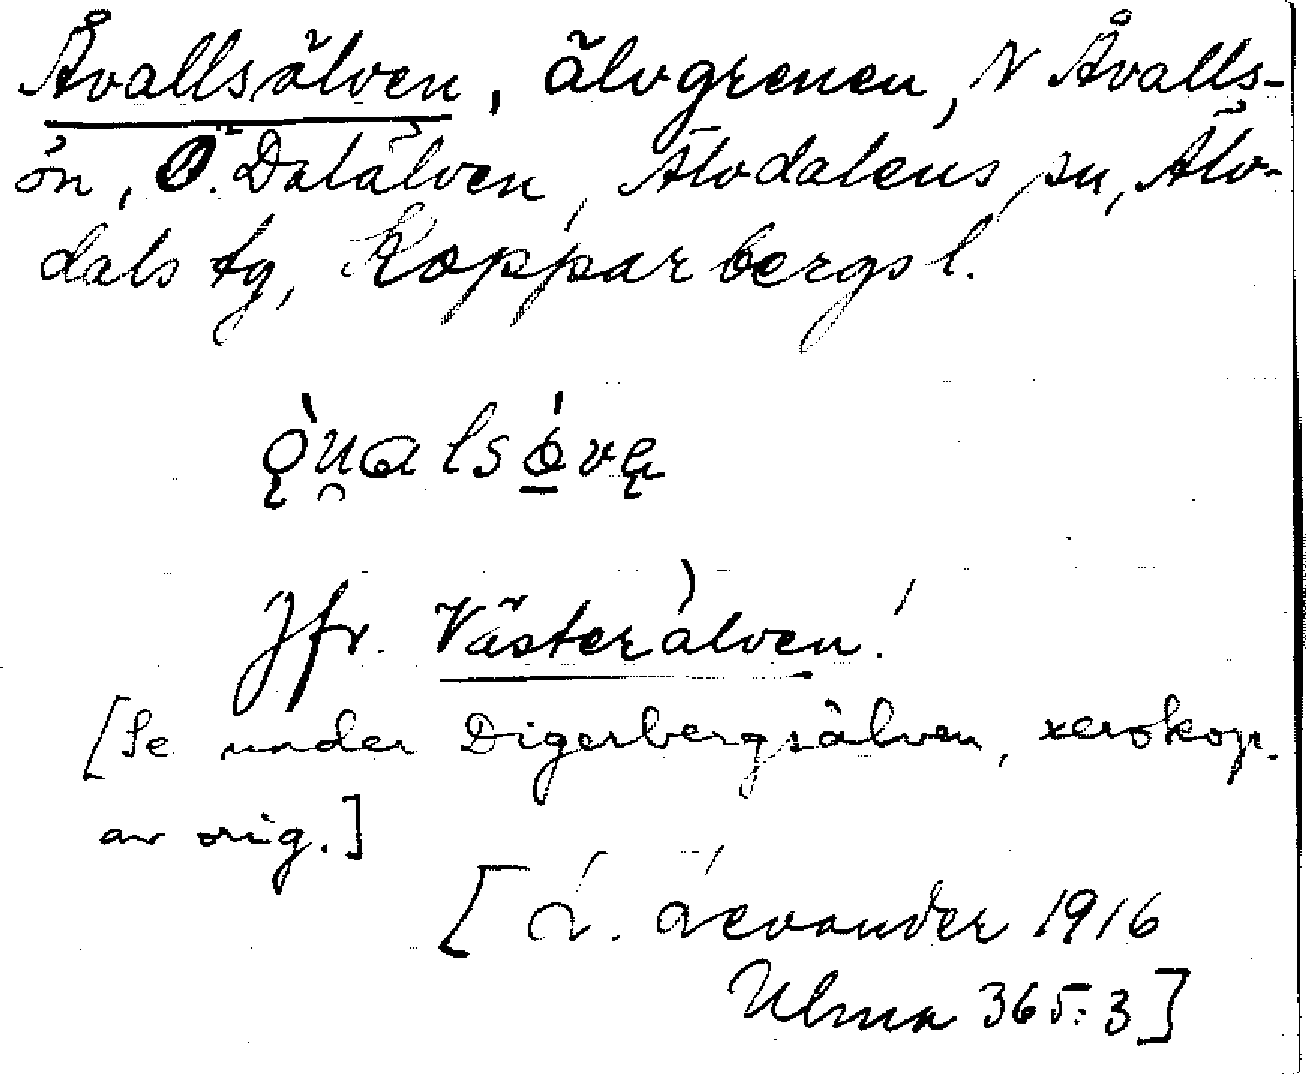 Åvallsälven, älvgrenen, N Åvalls-
ön, Ö. Dalälven, Älvdalens sn, Älv-
dals tg, Kopparbergs l.
Jfr. Västerälven!
[Se under Digerbergsälven, xerokop.
av orig.]
[L. Levander 1916
Ulma 365:3]